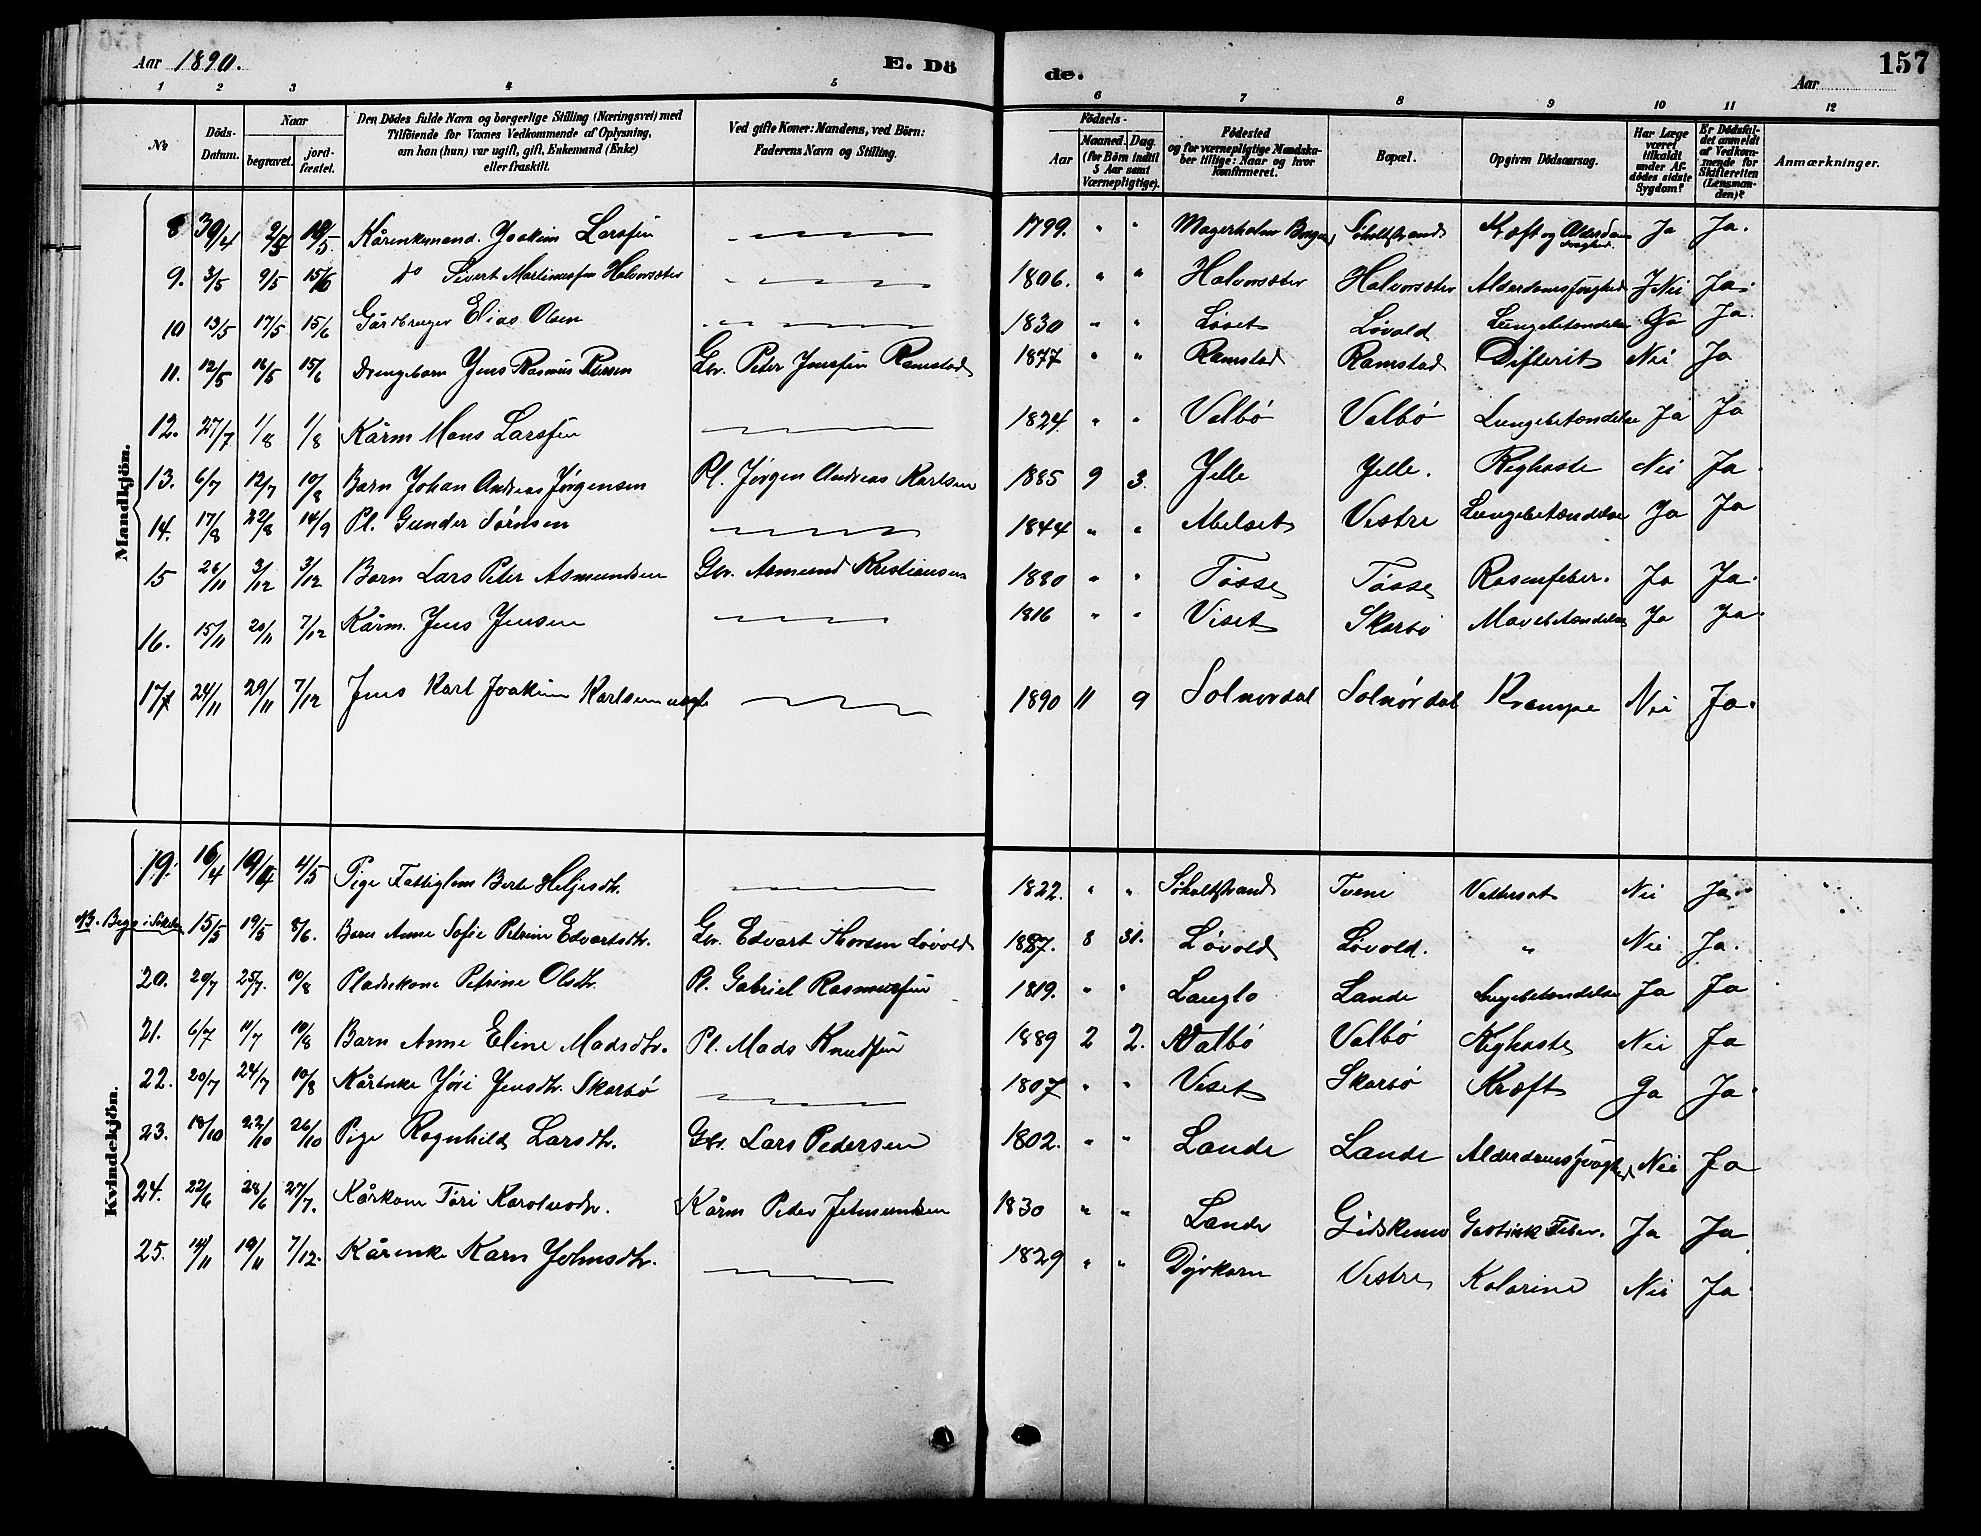 Aar 1890. E. Dö
de. Aar 157
1 2 3 4 5 6 7 8 9 10 11 12
No
Döds-Datum.
Naar
begravet.
jordfæstet.
Den Dødes fulde Navn og borgerlige Stilling (Næringsvei) med
Tilföiende for Voxnes Vedkommende af Oplysning,
om han (hun) var ugift, gift, Enkemand (Enke)
eller fraskilt.
Ved gifte Koner: Mandens, ved Börn:
Faderens Navn og Stilling.
Födsels-
Aar
Maaned. Dag.
(for Börn indtil
5 Aar samt
Værnepligtige).
Födested
og for værnepligtige Mandskaber tillige: Naar og hvor
konfirmeret.
Bopæl.
Opgiven Dödsaarsag.
Har Læge
været
tilkaldt
under Afdødes sidste
Sygdom?
Er Dödsfaldet anmeldt
af Vedkommende for
Skifteretten
(Lensmanden)?
Anmærkninger.
Mandkjön.
8 30/4 2/5 18/5 Kårenkemand. Joakim Larssen 1799. " " Magerholm Søholtstrand Kræft og Ja Ja.
9. 3/5 9/5 15/6 do Sivert Martinussen Halvorsæter 1806. " " Halvorsæter Halvorsæter Alderdomssvaghed Nei Ja.
10 13/5 17/5 15/6 Gårdbruger Elias Olsen 1830 " " Løset Løvold Lungebetændelse Ja Ja.
11. 12/5 16/5 15/6 Drengebarn Jens Rasmus Gbr. Peter Jenssen Ramstad 1877 " " Ramstad Ramstad Difterit Nei Ja
12. 27/7 1/8 1/8 Kårm Mons Larssen 1824. " " Valbö Valbö Lungebetændelse Ja Ja
13. 6/7 12/7 10/8 Barn Johan Andreas Jørgensen Pl. Jørgen Andreas Karlsen 1885 9 3. Jelle Jelle. Kighoste Nei Ja.
14. 17/8 22/8 14/9 Pl. Gunder Sørnsen 1844 " " Abelset Vestre Lungebetændelse Ja Ja
15 26/11 3/12 3/12 Barn Lars Peter Asmundsen Gbr. Asmund Kristiansen 1880 " " Tøsse Tøsse Rosenfeber. Ja Ja.
16. 15/11 20/11 7/12 Kårm. Jens Jensen 1816 " " Viset Skarbö Mavebetændelse Ja Ja.
17 24/11 29/11 7/12 Jens Karl Joakim Karlsen uægte 1890 11 9 Solnørdal Solnørdal Krampe Nei Ja.
Kvindekjön.
19. 16/4 19/4 4/5 Pige Fattiglem Berte Heljesdtr. 1822. " " Søholtstrand Tverli Vattersot Nei Ja.
NB. 15/5 19/5 8/6. Barn Anne Sofie Petrine Edvartsdtr. Gbr. Edvart Løvold 1887. 8 31. Løvold Løvold. " Nei Ja.
20. 20/7 25/7. 10/8 Pladskone Petrine Olsdtr. Pl. Gabriel Rasmussen 1819. " " Langlo Lande Lungebetændelse Ja Ja
21. 6/7 11/7 10/8 Barn Anne Eline Madsdtr. Pl. Mads Knudssen 1889 2 2. Valbö Valbö Kighoste Nei Ja
22. 20/7 24/7 10/8 Kårenke Jöri Jensdtr. Skarbö 1807 " " Viset Skarbö Kræft Ja Ja.
23. 18/10 22/10 26/10 Pige Ragnhild Larsdtr. Gbr. Lars Pedersen 1802. " " Lande Lande Alderdomssvaghed Nei Ja
24. 22/6 28/6 27/7. Kårkone Karolusdtr. Kårm Peder Jetmundsen 1830 " " Lande Gastrisk Feber. Ja Ja
25. 14/11 19/11 7/12. Kårenke Karn Johnsdtr. 1829 " " Dyrkorn Vestre Kolerine Nei Ja.